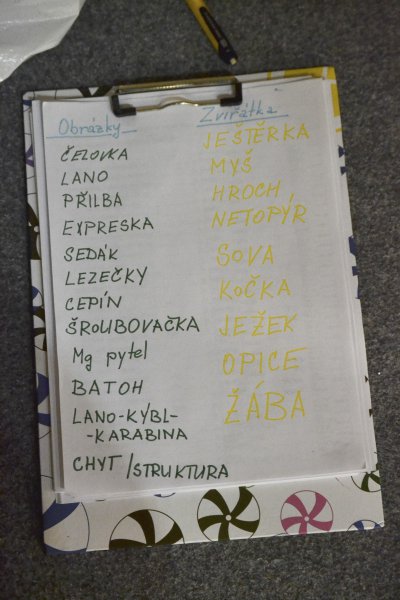 Obrázky
ČELOVKA
LANO
PŘILBA
EXPRESKA
SEDÁK
LEZEČKY
CEPÍN
ŠROUBOVAČKA
Mg pytel
BATOH
LANO-KÝBL-
-KARABINA
CHYT/STRUKTURA
Zvířátka
JEŠTĚRKA
MYŠ
HROCH
NETOPÝR
SOVA
KOČKA
JEŽEK
OPICE
ŽÁBA